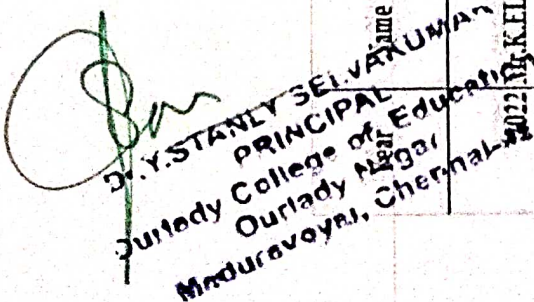 Dr.Y.STANLY SELVAKUMAR
PRINCIPAL
Ourlady College of Education
Ourlady Nagar
Maduravoyal, Chennai-
Year
2022 Mr.K.EL